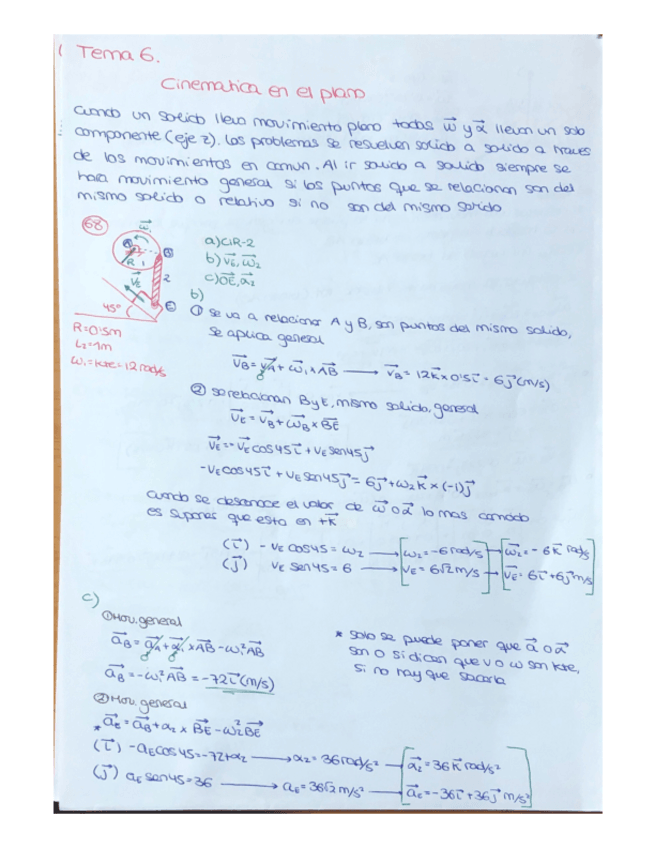 Tema 6.
Cinematica en el plano
Cuando un solido lleva movimiento plano todas w⃗ y α⃗ llevan un solo
componente (eje z). Los problemas se resuelven solido a solido a traves
de los movimientos en comun. Al ir solido a solido siempre se
hara movimiento general si los puntos que se relacionan son del
mismo solido o relativo si no son del mismo solido
68
w⃗₁
A
B
R
1
2
V⃗E
45°
E
R=0'5m
L₂=1m
w₁=kte=12rad/s
a) CIR-2
b) V⃗E, w⃗₂
c) a⃗E, α⃗₂
b)
① se va a relacionar A y B, son puntos del mismo solido,
se aplica general
V⃗B = V⃗A + w⃗₁ x AB⃗ → V⃗B = 12k⃗ x 0'5i⃗ = 6j⃗ (m/s)
0
② se relacionan B y E, mismo solido, general
V⃗E = V⃗B + w⃗B x BE⃗
V⃗E = -V⃗E cos45i⃗ + VE sen45j⃗
-VE cos45i⃗ + VE sen45j⃗ = 6j⃗ + w₂k⃗ x (-1)j⃗
cuando se desconoce el valor de w⃗ o α⃗ lo mas comodo
es suponer que esta en +k⃗
(i⃗) - VE cos45 = w₂ → w₂ = -6 rad/s → w⃗₂ = -6k⃗ rad/s
(j⃗) VE sen45 = 6 → VE = 6√2 m/s → V⃗E = 6i⃗ + 6j⃗ m/s
c)
① Mov. general
a⃗B = a⃗A + α⃗₁ x AB⃗ - w₁² AB⃗
0 0
a⃗B = -w₁² AB⃗ = -72i⃗ (m/s)
* solo se puede poner que a⃗ o α⃗
son 0 si dicen que v o w son kte,
si no hay que sacarla
② Mov. general
* a⃗E = a⃗B + α₂ x BE⃗ - w₂² BE⃗
(i⃗) -aE cos45 = -72+α₂ → α₂ = 36 rad/s² → α⃗₂ = 36k⃗ rad/s²
(j⃗) aE sen45 = 36 → aE = 36√2 m/s² → a⃗E = -36i⃗ + 36j⃗ m/s²